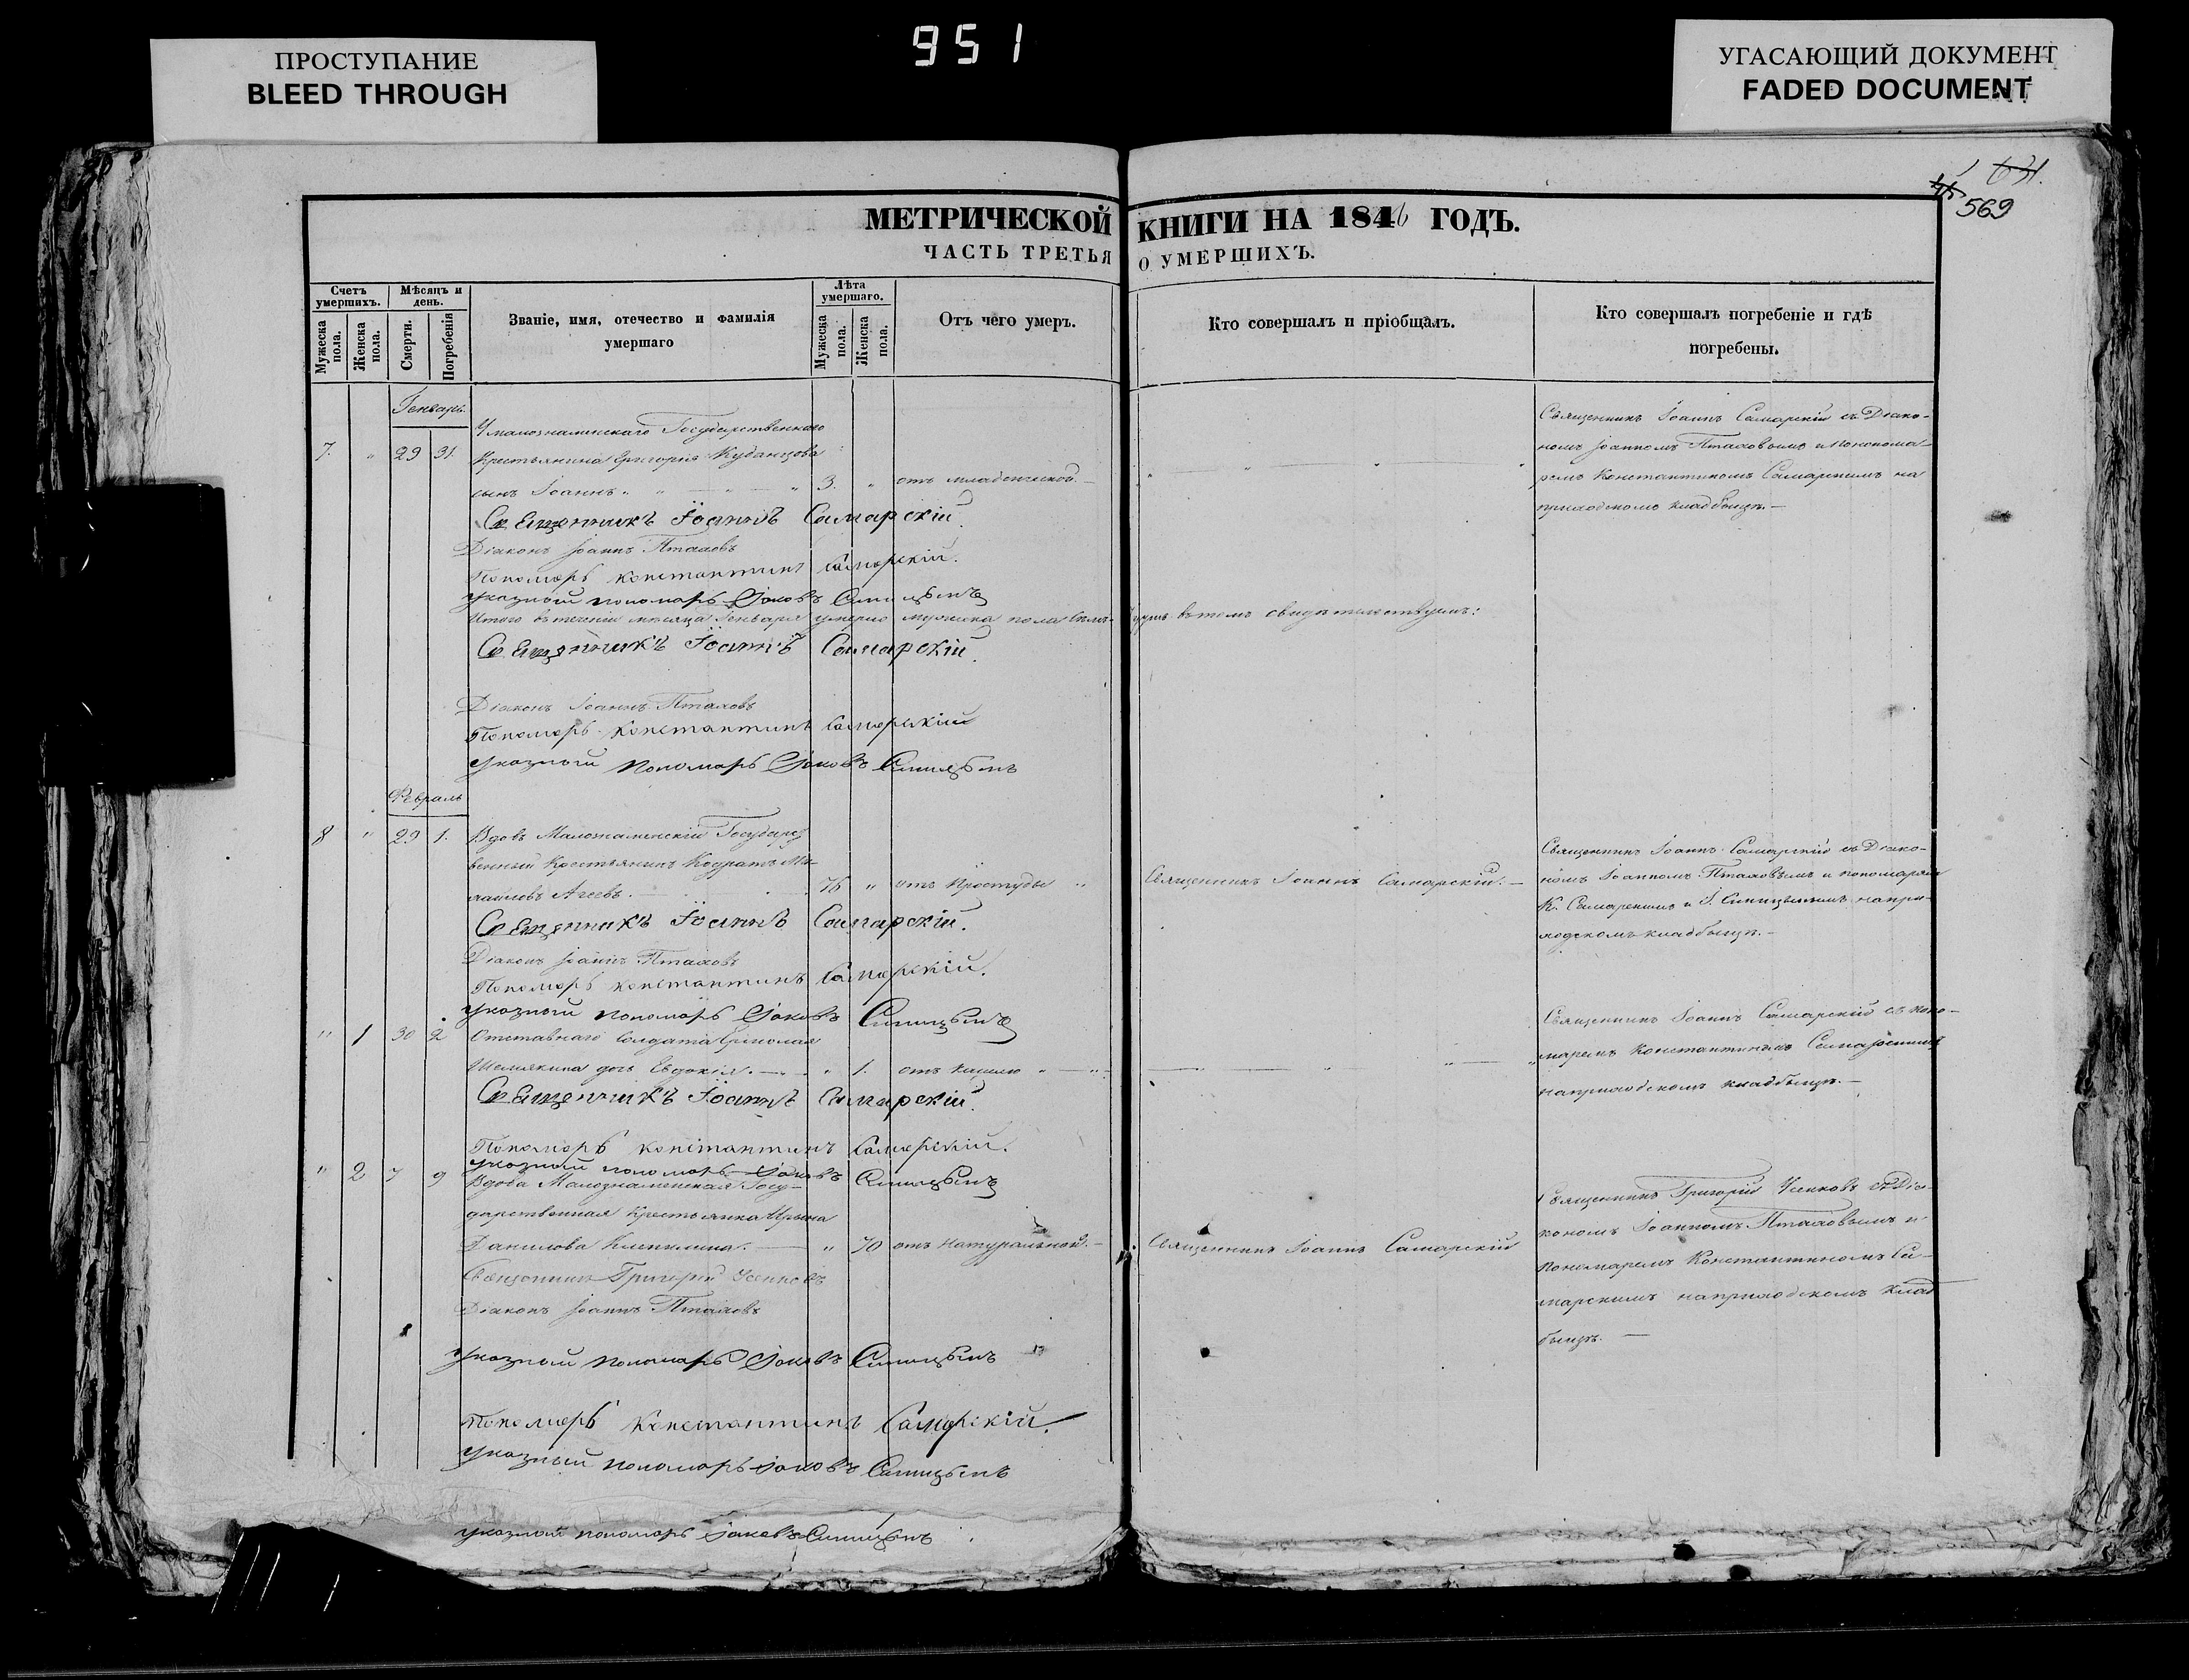 951
ПРОСТУПАНИЕ
BLEED THROUGH
УГАСАЮЩИЙ ДОКУМЕНТ
FADED DOCUMENT
569
МЕТРИЧЕСКОЙ КНИГИ НА 1846 ГОДЪ.
ЧАСТЬ ТРЕТЬЯ О УМЕРШИХЪ.
Счетъ умершихъ.
Мужеска пола.
Женска пола.
Мѣсяцъ и день.
Смерти.
Погребенія
Званіе, имя, отечество и фамилія
умершаго
Лѣта умершаго.
Мужеска пола.
Женска пола.
Отъ чего умеръ.
Кто совершалъ и пріобщалъ.
Кто совершалъ погребеніе и гдѣ
погребены.
Генварь
7. " 29 31.
Умалознаменскаго Государственнаго
Крестьянина Григорія
сынъ Іоаннъ " " 3. " отъ младенческой.
Священникъ Іоаннъ Самарскій съ Діако-
номъ Іоанномъ Птаховымъ и понома-
ремъ Константиномъ Самарскимъ на
приходскомъ кладбищѣ.
Священникъ Іоаннъ Самарскій.
Діаконъ Іоаннъ Птаховъ
Пономарь Константинъ Самарскій.
указный пономарь Іаковъ Синицынъ
Итого въ теченіи мѣсяца Генваря умерло мужеска пола семь душъ въ томъ свидѣтельствуемъ:
Священникъ Іоаннъ Самарскій.
Діаконъ Іоаннъ Птаховъ
Пономарь Константинъ Самарскій
указный пономарь Іаковъ Синицынъ
Февраль
8 " 29 1.
Вдовъ Малознаменскій Государст
венный Крестьянинъ Кодратъ Ми-
хаиловъ Агеевъ. 76 " отъ простуды "
Священникъ Іоаннъ Самарскій.
Священникъ Іоаннъ Самарскій съ Діако-
номъ Іоанномъ Птаховымъ и пономарями
К. Самарскимъ и І. Синицынымъ на при-
ходскомъ кладбищѣ.
Священникъ Іоаннъ Самарскій.
Діаконъ Іоаннъ Птаховъ
Пономарь Константинъ Самарскій.
указный пономарь Іаковъ Синицынъ
" 1 30 2
Отставнаго Солдата
Шемякина дочь Евдокія. " 1. отъ кашлю "
Священникъ Іоаннъ Самарскій съ поно-
маремъ Константиномъ Самарскимъ
на приходскомъ кладбищѣ.
Священникъ Іоаннъ Самарскій.
Пономарь Константинъ Самарскій.
указный пономарь Іаковъ Синицынъ
" 2 7 9
Вдова Малознаменская Госу-
дарственная Крестьянка Ирина
Данилова " 70 отъ натуральной.
Священникъ Іоаннъ Самарскій
Священникъ Григорій Усенковъ съ Діа-
кономъ Іоанномъ Птаховымъ и
пономаремъ Константиномъ Са-
марскимъ на приходскомъ клад
бищѣ.
Священникъ Григорій Усенковъ
Діаконъ Іоаннъ Птаховъ
указный пономарь Іаковъ Синицынъ
Пономарь Константинъ Самарскій.
указный пономарь Іаковъ Синицынъ
указный пономарь Іаковъ Синицынъ